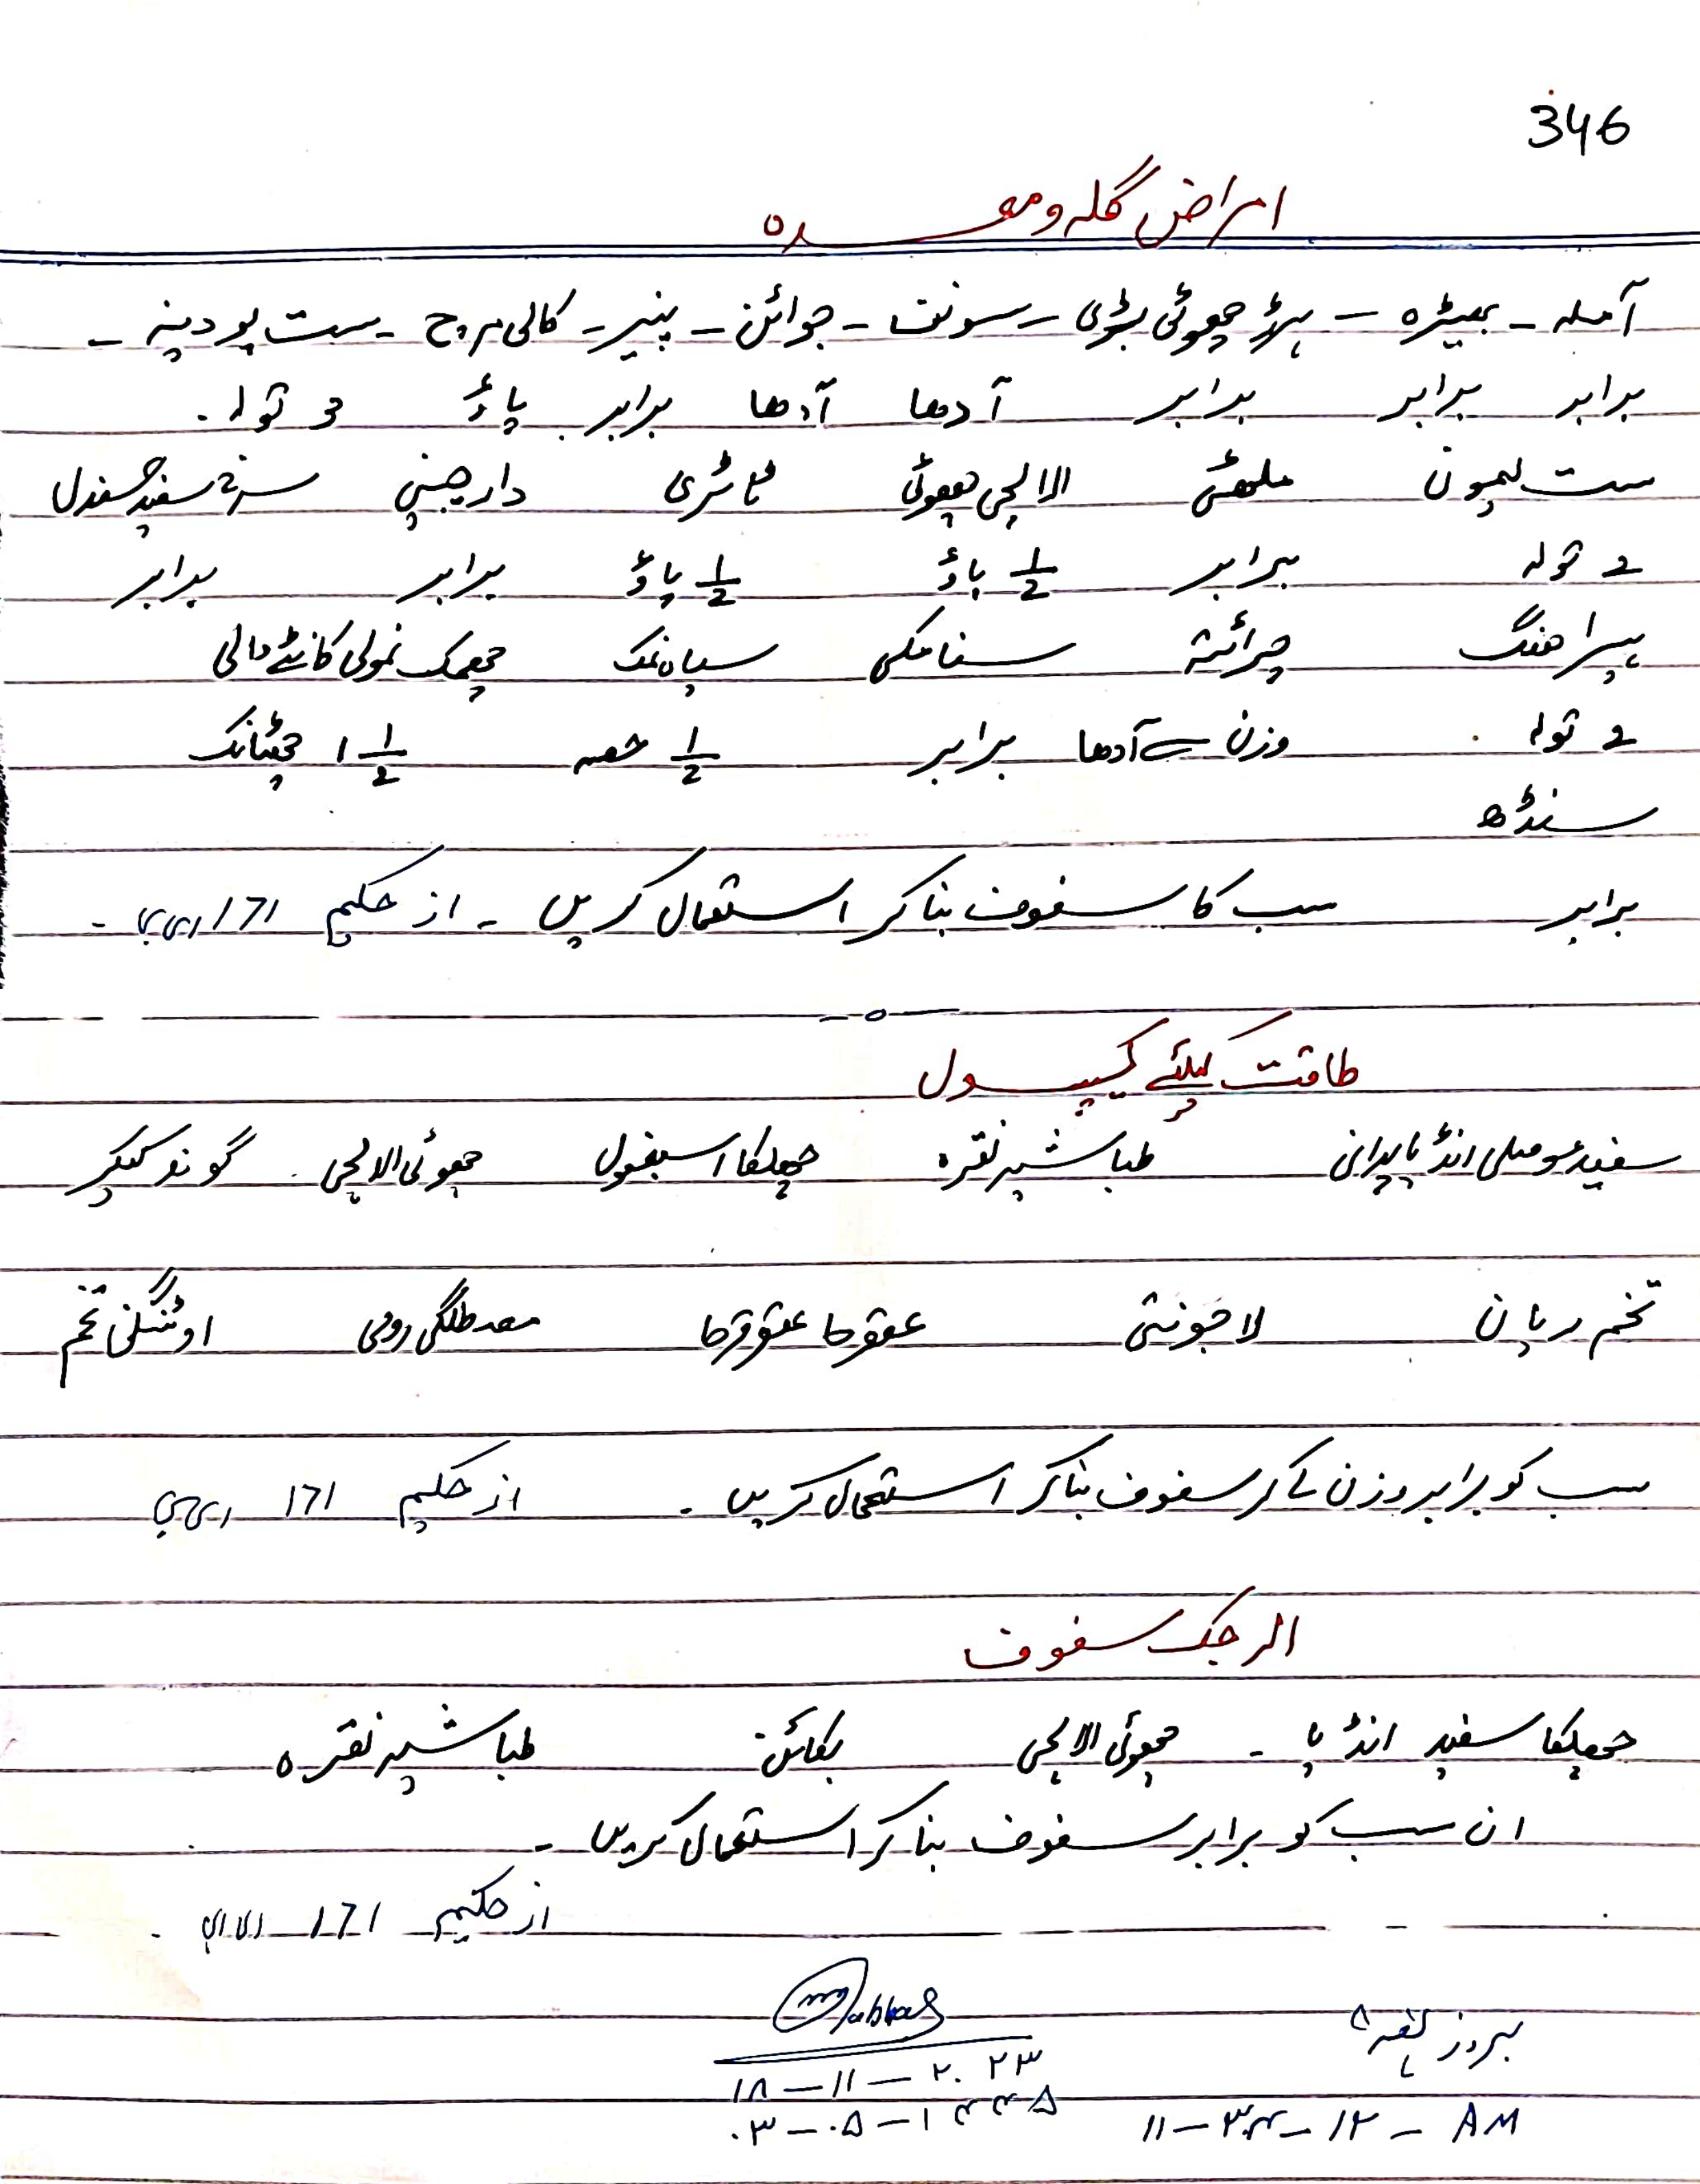 346
امراض گلہ و معدہ
آملہ - بہیڑہ - ہرڑ چھوٹی بڑی - سونف - جوائن - پنیر - کالی مرچ - ست پودینہ -
برابر برابر برابر آدھا آدھا برابر پاؤ 2 تولہ .
ست لیموں ملٹھی الائچی چھوٹی ٹاٹری دارچینی سرخ سفید صندل
2 تولہ برابر 1/2 پاؤ 1/2 پاؤ برابر برابر
ہیرا ھنگ چرائتہ سنامکی سیاہ نمک چمک نمولی کانٹے والی
2 تولہ وزن سے آدھا برابر 1/2 حصہ 1 1/2 چھٹانک
سنڈھ
برابر سب کا سفوف بنا کر استعمال کریں - از حکیم 171
طاقت کیلئے کیپسول
سفید موصلی انڈیا پرانی طباشیر نقرہ چھلکا اسبغول چھوٹی الائچی گوند کیکر
تخم ریان لاجونتی عقرحا عقرقرحا مصطلگی رومی اوٹنگنی تخم
سب کو برابر وزن لے کر سفوف بنا کر استعمال کریں - از حکیم 171
الرجک سفوف
چھلکا سفید انڈیا - چھوٹی الائچی بکائن طباشیر نقرہ
ان سب کو برابر سفوف بنا کر استعمال کریں -
از حکیم 171
بروز ہفتہ
۱۸ - ۱۱ - ۲۰۲۳
۰۳ - ۰۵ - ۱۴۴۵
۱۱ - ۳۴ - ۱۲ - AM